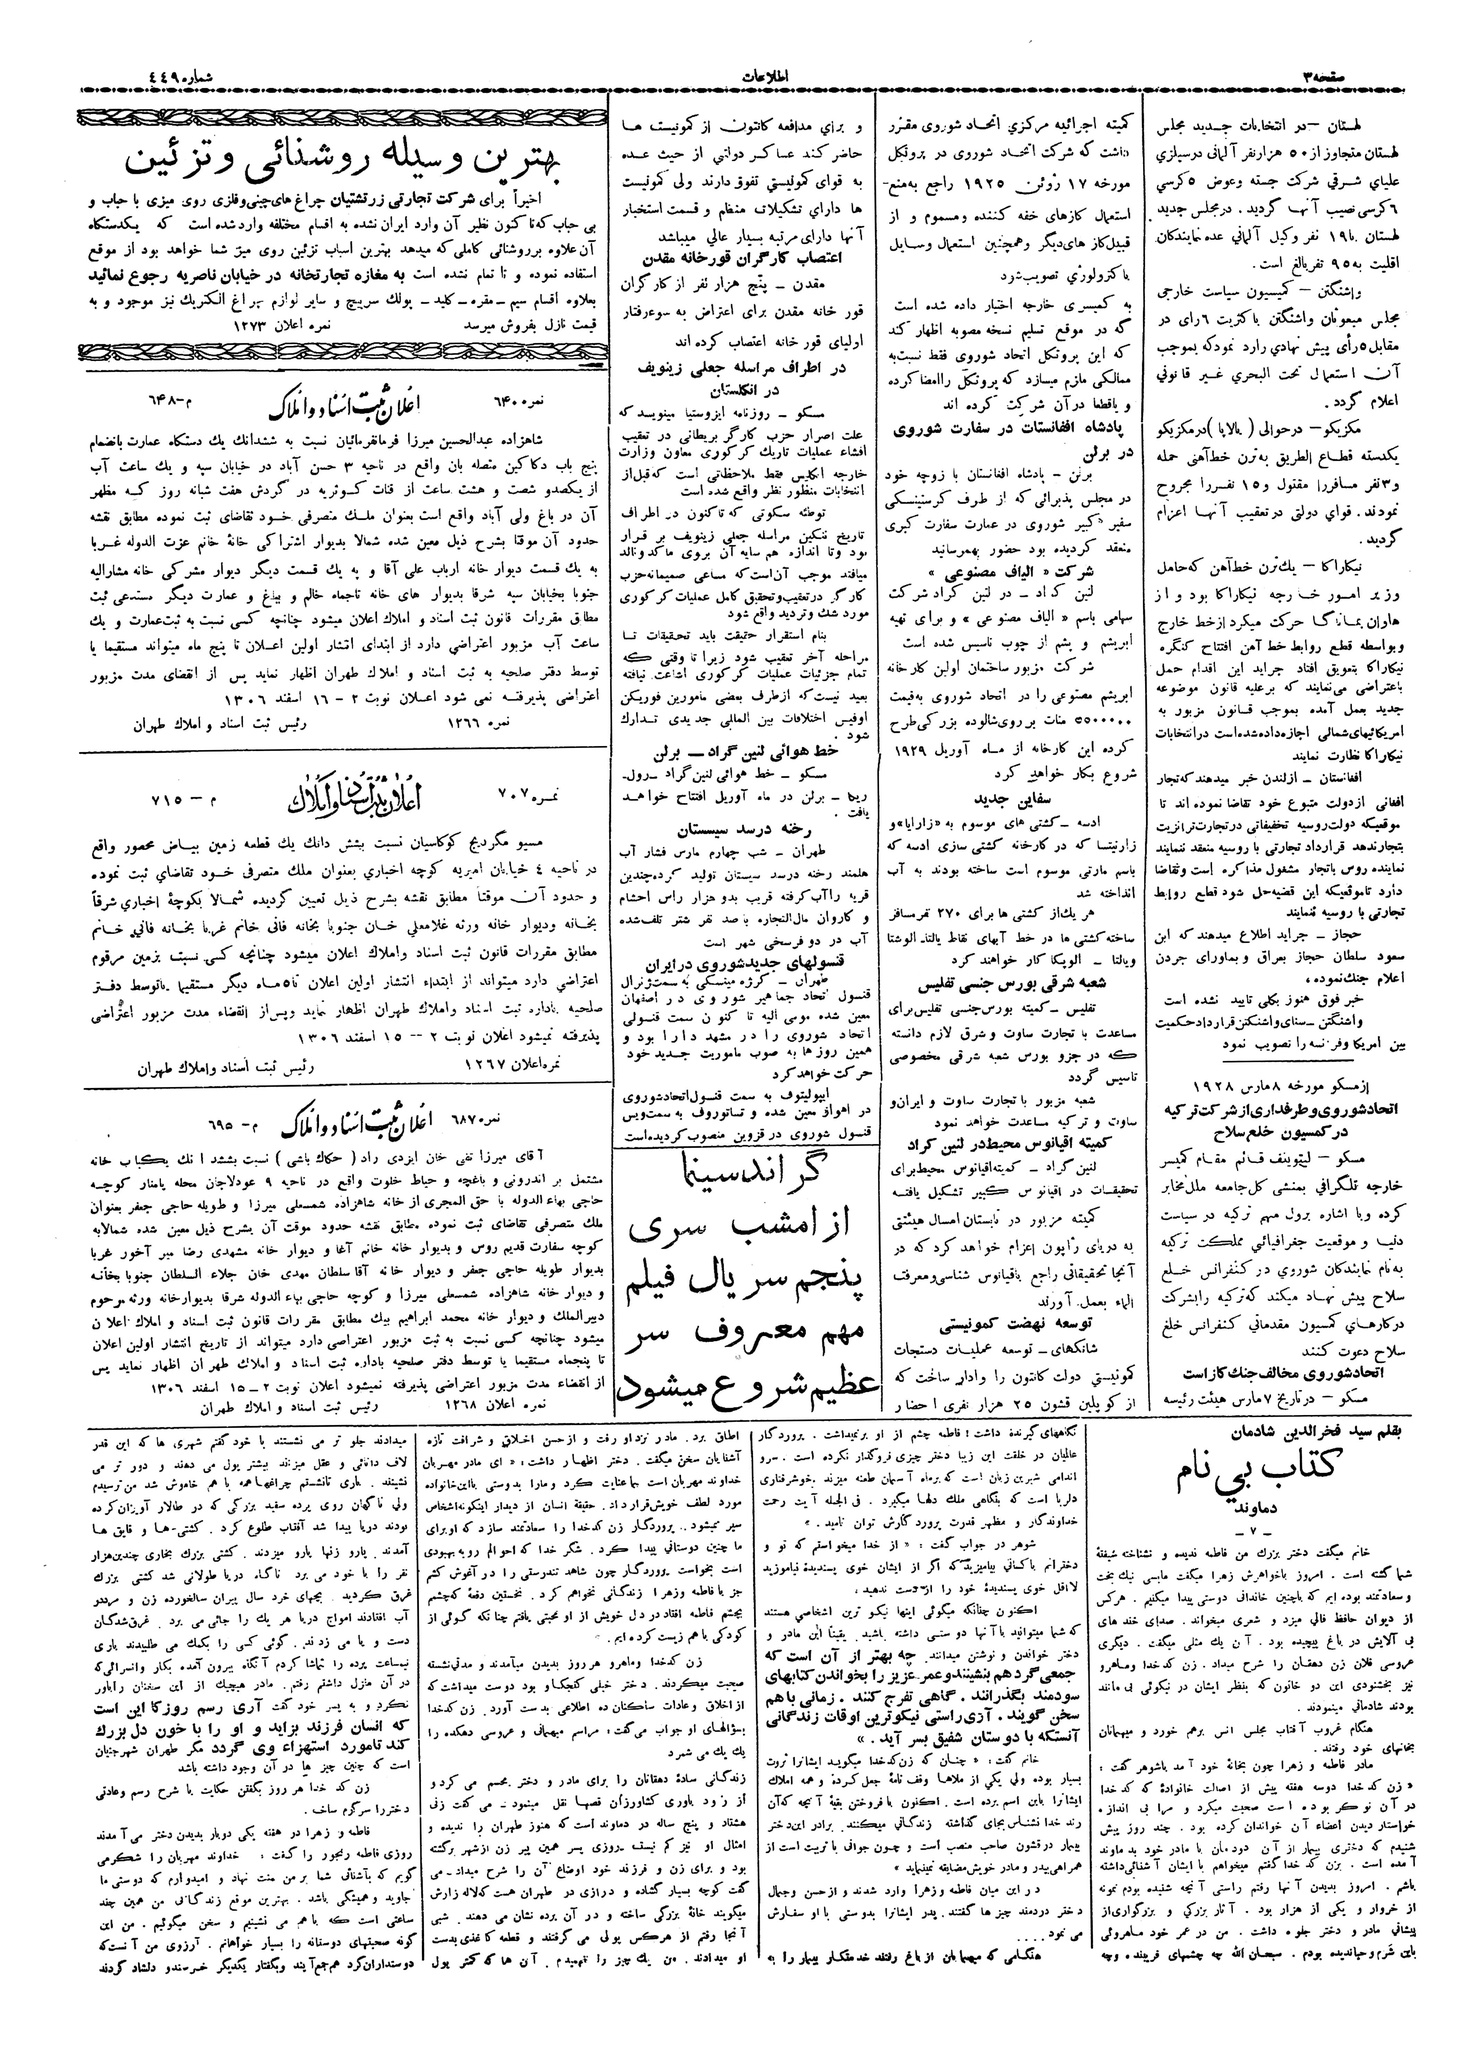 صفحه ۳
اطلاعات
شماره ۴۴۹
لهستان – در انتخابات جدید مجلس
لهستان متجاوز از ۵۰ هزار نفر آلمانی در سیلزی
علیای شرقی شرکت جسته و عوض ۵ کرسی
۶ کرسی نصیب آنها گردید . در مجلس جدید
لهستان با ۱۹ نفر وکیل آلمانی عده نمایندگان
اقلیت به ۹۵ نفر بالغ است .
واشنگتن – کمیسیون سیاست خارجی
مجلس مبعوثان واشنگتن باکثریت ۶ رای در
مقابل ۵ رأی پیش نهادی وارد نمود که بموجب
آن استعمال تحت البحری غیر قانونی
اعلام گردد .
مکزیکو – در حوالی ( بالاپا ) در مکزیکو
یکدسته قطاع الطریق به ترن خط آهنی حمله
و ۳ نفر مسافر را مقتول و ۱۵ نفر را مجروح
نمودند . قوای دولتی در تعقیب آنها اعزام
گردید .
نیکاراکا – یک ترن خط آهن که حامل
وزیر امور خارجه نیکاراکا بود و از
هاوان بماناگا حرکت میکرد از خط خارج
و بواسطه قطع روابط خط آهن افتتاح کنگره
نیکاراکا بتعویق افتاد جراید این اقدام حمل
باعتراضی می نمایند که بر علیه قانون موضوعه
جدید بعمل آمده بموجب قانون مزبور به
امریکائیهای شمالی اجازه داده شده است در انتخابات
نیکاراکا نظارت نمایند
افغانستان – از لندن خبر میدهند که تجار
افغانی از دولت متبوع خود تقاضا نموده اند تا
موقعیکه دولت روسیه تخفیفاتی در تجارت ترانزیت
بتجار ندهد قرارداد تجارتی با روسیه منعقد ننمایند
نماینده روس با تجار مشغول مذاکره است و تقاضا
دارد تا موقعیکه این قضیه حل شود قطع روابط
تجارتی با روسیه ننمایند
حجاز – جراید اطلاع میدهند که ابن
سعود سلطان حجاز بعراق و بماورای جردن
اعلام جنك نموده ،
خبر فوق هنوز بکلی تایید نشده است
واشنگتن – سنای واشنگتن قرارداد حکمیت
بین امریکا و فرانسه را تصویب نمود
از مسکو مورخه ۸ مارس ۱۹۲۸
اتحاد شوروی و طرفداری از شرکت ترکیه
در کمسیون خلع سلاح
مسکو – لیتوینف قائم مقام کمیسر
خارجه تلگرافی بمنشی کل جامعه ملل مخابر
کرده و با اشاره برول مهم ترکیه در سیاست
دنیا و موقعیت جغرافیائی مملکت ترکیه
به نام نمایندگان شوروی در کنفرانس خلع
سلاح پیش نهاد میکند که ترکیه را بشرکت
در کارهای کمسیون مقدماتی کنفرانس خلع
سلاح دعوت کنند
اتحاد شوروی مخالف جنك گاز است
مسکو – در تاریخ ۷ مارس هیئت رئیسه
کمیته اجرائیه مرکزی اتحاد شوروی مقرر
داشت که شرکت اتحاد شوروی در پروتکل
مورخه ۱۷ ژوئن ۱۹۲۵ راجع به منع
استعمال گازهای خفه کننده و مسموم و از
قبیل گازهای دیگر و همچنین استعمال وسایل
باکترولوژی تصویب شود
به کمیسری خارجه اختیار داده شده است
که در موقع تسلیم نسخه مصوبه اظهار کند
که این پروتکل اتحاد شوروی فقط نسبت به
ممالکی ملزم میسازد که پروتکل را امضا کرده
و یا قطعا در آن شرکت کرده اند
پادشاه افغانستان در سفارت شوروی
در برلن
برلن – پادشاه افغانستان با زوجه خود
در مجلس پذیرائی که از طرف کرستینسکی
سفیر کبیر شوروی در عمارت سفارت کبری
منعقد گردیده بود حضور بهمرسانید
شرکت « الیاف مصنوعی »
لنین گراد – در لنین گراد شرکت
سهامی باسم « الیاف مصنوعی » و برای تهیه
ابریشم و پشم از چوب تاسیس شده است
شرکت مزبور ساختمان اولین کارخانه
ابریشم مصنوعی را در اتحاد شوروی به قیمت
۵۵۰۰۰۰۰ منات بر روی شالوده بزرگی طرح
کرده این کارخانه از ماه آوریل ۱۹۲۹
شروع بکار خواهد کرد
سفاین جدید
ادسه – کشتی های موسوم به « زارایا » و
زارنیتسا که در کارخانه کشتی سازی ادسه که
باسم مارتی موسوم است ساخته بودند به آب
انداخته شد
هر یک از کشتی ها برای ۲۷۰ نفر مسافر
ساخته کشتی ها در خط آبهای نقاط یالتا – الوشتا
و یالتا – الوپکا کار خواهند کرد
شعبه شرقی بورس جنسی تفلیس
تفلیس – کمیته بورس جنسی تفلیس برای
مساعدت با تجارت ساوت و شرق لازم دانسته
که در جزو بورس شعبه شرقی مخصوصی
تاسیس گردد
شعبه مزبور با تجارت ساوت و ایران و
ساوت و ترکیه مساعدت خواهد نمود
کمیته اقیانوس محیط در لنین گراد
لنین گراد – کمیته اقیانوس محیط برای
تحقیقات در اقیانوس کبیر تشکیل یافته
کمیته مزبور در تابستان امسال هیئتی
به دریای ژاپون اعزام خواهد کرد که در
آنجا تحقیقاتی راجع باقیانوس شناسی و معرفت
الماء بعمل آورند
توسعه نهضت کمونیستی
شانگهای – توسعه عملیات دستجات
کمونیستی دولت کانتون را وادار ساخت که
از کوپلین قشون ۲۵ هزار نفری احضار
و برای مدافعه کانتون از کمونیست ها
حاضر کند عساکر دولتی از حیث عده
به قوای کمونیستی تفوق دارند ولی کمونیست
ها دارای تشکیلات منظم و قسمت استخبار
آنها دارای مرتبه بسیار عالی میباشد
اعتصاب کارگران قورخانه مقدن
مقدن – پنج هزار نفر از کارگران
قور خانه مقدن برای اعتراض به سوء رفتار
اولیای قور خانه اعتصاب کرده اند
در اطراف مراسله جعلی زینویف
در انگلستان
مسکو – روزنامه ایزوستیا مینویسد که
علت اصرار حزب کارگر بریطانی در تعقیب
افشاء عملیات تاریک کرکوری معاون وزارت
خارجه انگلیس فقط ملاحظاتی است که قبل از
انتخابات منظور نظر واقع شده است
توطئه سکوتی که تاکنون در اطراف
تاریخ ننگین مراسله جعلی زینویف بر قرار
بود و تا اندازه هم سایه آن بروی ماکدونالد
میافتد موجب آن است که مساعی صمیمانه حزب
کارگر در تعقیب و تحقیق کامل عملیات کرکوری
مورد شك و تردید واقع شود
بنام استقرار حقیقت باید تحقیقات تا
مراحله آخر تعقیب شود زیرا تا وقتی که
تمام جزئیات عملیات کرکوری اشاعت نیافته
بعید نیست که از طرف بعضی مامورین فوریگن
اوفیس اختلافات بین المللی جدیدی تدارك
شود .
خط هوائی لنین گراد – برلن
مسکو – خط هوائی لنین گراد – رول
ریما – برلن در ماه آوریل افتتاح خواهد
یافت .
رخنه در سد سیستان
طهران – شب چهارم مارس فشار آب
هلمند رخنه در سد سیستان تولید کرده چندین
قریه را آب گرفته قریب بدو هزار راس احشام
و کاروان مال التجاره با صد نفر شتر تلف شده
آب در دو فرسخی شهر است
قنسولهای جدید شوروی در ایران
طهران – کرژه مینسکی به سمت ژنرال
قنسول اتحاد جماهیر شوروی در اصفهان
معین شده مومی الیه تا کنون سمت قنسولی
اتحاد شوروی را در مشهد دارا بود و
همین روزها به صوب ماموریت جدید خود
حرکت خواهد کرد
ایپولیتوف به سمت قنسول اتحاد شوروی
در اهواز معین شده و تساتوروف به سمت ویس
قنسول شوروی در قزوین منصوب گردیده است
گراند سینما
از امشب سری
پنجم سریال فیلم
مهم معروف سر
عظیم شروع میشود
بهترین وسیله روشنائی و تزئین
اخیراً برای شرکت تجارتی زرتشتیان چراغ های چینی و فلزی روی میزی با حباب و
بی حباب که تا کنون نظیر آن وارد ایران نشده به اقسام مختلفه وارد شده است که یکدستگاه
آن علاوه بر روشنائی کاملی که میدهد بهترین اسباب تزئین روی میز شما خواهد بود از موقع
استفاده نموده و تا تمام نشده است به مغازه تجارتخانه در خیابان ناصریه رجوع نمائید
بعلاوه اقسام سیم – مقره – کلید – پولك سرپیچ و سایر لوازم چراغ الکتریك نیز موجود و به
قیمت نازل بفروش میرسد نمره اعلان ۱۲۷۳
نمره ۶۴۰۰ اعلان ثبت اسناد و املاك م – ۶۴۸
شاهزاده عبدالحسین میرزا فرمانفرمائیان نسبت به ششدانك یك دستگاه عمارت بانضمام
پنج باب دکاکین متصله بان واقع در ناحیه ۳ حسن آباد در خیابان سپه و یك ساعت آب
از یکصدو شصت و هشت ساعت از قنات کوثریه در گردش هفت شبانه روز که مظهر
آن در باغ ولی آباد واقع است بعنوان ملك متصرفی خود تقاضای ثبت نموده مطابق نقشه
حدود آن موقتا بشرح ذیل معین شده شمالا بدیوار اشتراکی خانهٔ خانم عزت الدوله غربا
به یك قسمت دیوار خانه ارباب علی آقا و به یك قسمت دیگر دیوار مشرکی خانه مشارالیه
جنوبا بخیابان سپه شرقا بدیوار های خانه تاجماه خالم و بیلغ و عمارت دیگر مستدعی ثبت
مطابق مقررات قانون ثبت اسناد و املاك اعلان میشود چنانچه کسی نسبت به ثبت عمارت و یك
ساعت آب مزبور اعتراضی دارد از ابتدای انتشار اولین اعلان تا پنج ماه میتواند مستقیما یا
توسط دفتر صلحیه به ثبت اسناد و املاك طهران اظهار نماید پس از انقضای مدت مزبور
اعتراضی پذیرفته نمی شود اعلان نوبت ۲ – ۱۶ اسفند ۱۳۰۶
نمره ۱۲۶۶ رئیس ثبت اسناد و املاك طهران
نمره ۷۰۷ اعلان ثبت اسناد و املاك م – ۷۱۵
مسیو مگردیچ کوکاسیان نسبت بشش دانك یك قطعه زمین بیاض محصور واقع
در ناحیه ۴ خیابان امیریه کوچه اخباری بعنوان ملك متصرفی خود تقاضای ثبت نموده
و حدود آن موقتا مطابق نقشه بشرح ذیل تعیین گردیده شمالا بکوچهٔ اخباری شرقاً
بخانه و دیوار خانه ورثه غلامعلی خان جنوبا بخانه فانی خانم غربا بخانه فانی خانم
مطابق مقررات قانون ثبت اسناد و املاك اعلان میشود چنانچه کسی نسبت بزمین مرقوم
اعتراضی دارد میتواند از ابتداء انتشار اولین اعلان تا ۵ ماه دیگر مستقیما یا توسط دفتر
صلحیه باداره ثبت اسناد و املاك طهران اظهار نماید و پس از انقضاء مدت مزبور اعتراضی
پذیرفته نمیشود اعلان نوبت ۲ –– ۱۵ اسفند ۱۳۰۶
نمره اعلان ۱۲۶۷ رئیس ثبت اسناد و املاك طهران
نمره ۶۸۷ اعلان ثبت اسناد و املاك م – ۶۹۵
آقای میرزا تقی خان ایزدی راد ( حکاك باشی ) نسبت بششدانك یکباب خانه
مشتمل بر اندرونی و باغچه و حیاط خلوت واقع در ناحیه ۹ عودلاجان محله پامنار کوچه
حاجی بهاء الدوله با حق المجری از خانه شاهزاده شمسعلی میرزا و طویله حاجی جعفر بعنوان
ملك متصرفی تقاضای ثبت نموده مطابق نقشه حدود موقت آن بشرح ذیل معین شده شمالا به
کوچه سفارت قدیم روس و بدیوار خانه خانم آغا و دیوار خانه مشهدی رضا میر آخور غربا
بدیوار طویله حاجی جعفر و دیوار خانه آقا سلطان مهدی خان جلاء السلطان جنوبا بخانه
و دیوار خانه شاهزاده شمسعلی میرزا و کوچه حاجی بهاء الدوله شرقا بدیوار خانه ورثه مرحوم
دبیرالملك و دیوار خانه محمد ابراهیم بیك مطابق مقررات قانون ثبت اسناد و املاك اعلان
میشود چنانچه کسی نسبت به ثبت مزبور اعتراضی دارد میتواند از تاریخ انتشار اولین اعلان
تا پنجماه مستقیما یا توسط دفتر صلحیه باداره ثبت اسناد و املاك طهران اظهار نماید پس
از انقضاء مدت مزبور اعتراضی پذیرفته نمیشود اعلان نوبت ۲ – ۱۵ اسفند ۱۳۰۶
نمره اعلان ۱۲۶۸ رئیس ثبت اسناد و املاك طهران
بقلم سید فخرالدین شادمان
کتاب بی نام
دماوند
– ۷ –
خانم میگفت دختر بزرك من فاطمه ندیده و نشناخته شیفتهٔ
شما گشته است . امروز باخواهرش زهرا میگفت مابسی نیك بخت
و سعادتمند بوده ایم که باچنین خاندانی دوستی پیدا میکنیم . هر کس
از دیوان حافظ فالی میزد و شعری میخواند . صدای خنده های
بی آلایش در باغ پیچیده بود . آن یك مثلی میگفت . دیگری
عروسی فلان زن دهقان را شرح میداد . زن کدخدا و ماهرو
نیز بخشنودی این دو خاتون که بنظر ایشان در نیکوئی بی مانند
بودند شادمانی مینمودند .
هنگام غروب آفتاب مجلس انس برهم خورد و میهمانان
بخانهای خود رفتند .
مادر فاطمه و زهرا چون بخانهٔ خود آمد باشوهر گفت :
« زن کدخدا دوسه هفته پیش از اصالت خانوادهٔ که کدخدا
در آن نوکر بوده است صحبت میکرد و مرا بی اندازه
خواستار دیدن اعضاء آن خواندان کرده بود . چند روز پیش
شنیدم که دختری بیمار از آن دودمان با مادر خود بدماوند
آمده است . بزن کدخدا گفتم میخواهم با ایشان آشنائی داشته
باشم . امروز بدیدن آنها رفتم راستی آنچه شنیده بودم نمونه
از خروار و یکی از هزار بود . آثار بزرگی و بزرگواری از
پیشانی مادر و دختر جلوه داشت . من در عمر خود ماهروئی
باین شرم و حیاندیده بودم . سبحان الله چه چشمهای فریبنده و چه
نگاههای گیرندهٔ داشت ! فاطمه چشم از او برنمیداشت . پروردگار
عالمیان در خلقت این زیبا دختر چیزی فروگذار نکرده است . سرو
اندامی شیرین زبان است که بر ماه آسمان طعنه میزند . خوشرفتاری
دلربا است که بنگاهی ملك دلها میگیرد . فی الجمله آیت رحمت
خداوندگار و مظهر قدرت پروردگارش توان نامید . »
شوهر در جواب گفت : « از خدا میخواستم که تو و
دخترانم باکسانی بیامیزید که اگر از ایشان خوی پسندیدهٔ نیاموزید
لااقل خوی پسندیدهٔ خود را از دست ندهید ،
اکنون چنانکه میگوئی اینها نیکو ترین اشخاصی هستند
که شما میتوانید با آنها دوستی داشته باشید . یقینا این مادر و
دختر خواندن و نوشتن میدانند . چه بهتر از آن است که
جمعی گرد هم بنشینند و عمر عزیز را بخواندن کتابهای
سودمند بگذرانند . گاهی تفرج کنند . زمانی با هم
سخن گویند . آری راستی نیکوترین اوقات زندگانی
آنستکه با دوستان شفیق بسر آید . »
خانم گفت : « چنان که زن کدخدا میگوید ایشانرا ثروت
بسیار بوده ولی یکی از ملاها وقف نامهٔ جعل کردهٔ و همه املاك
ایشانرا باین اسم برده است . اکنون با فروختن بقیهٔ آنچه که آن
رند خدا نشناس بجای گذاشته زندگانی میکنند . برادر این دختر
بیمار در قشون صاحب منصب است و چون جوانی با تربیت است از
همراهی پدر و مادر خویش مضایقه نمینماید »
در این میان فاطمه و زهرا وارد شدند و از حسن و جمال
دختر دردمند چیز ها گفتند . پدر ایشانرا بدوستی با او سفارش
می نمود .
هنگامی که میهمانان از باغ رفتند خدمتگار بیمار را به
اطاق برد . مادر نزد او رفت و از حسن اخلاق و شرافت تازه
آشنایان سخن میگفت . دختر اظهار داشت : « ای مادر مهربان
خداوند مهربان است بما عنایت کرد و مارا بدوستی بااین خانواده
مورد لطف خویش قرار داد . حقیقة انسان از دیدار اینگونه اشخاص
سیر نمیشود . پروردگار زن کدخدا را سعادتمند سازد که او برای
ما چنین دوستانی پیدا کرد . شکر خدا که احوالم رو به بهبودی
است بخواست پروردگار چون شاهد تندرستی را در آغوش کشم
جز با فاطمه و زهرا زندگانی نخواهم کرد . نخستین دفعهٔ که چشم
بچشم فاطمه افتاد در دل خویش از او محبتی یافتم چنانکه گوئی از
کودکی با هم زیست کرده ایم .
زن کدخدا و ماهرو هر روز بدیدن میآمدند و مدتی نشسته
صحبت میکردند . دختر خیلی کنجکاو بود دوست میداشت که
از اخلاق و عادات ساکنان ده اطلاعی بدست آورد . زن کدخدا
بسؤالهای او جواب می گفت : مراسم میهمانی و عروسی دهکده را
یك یك می شمرد
زندگانی سادهٔ دهقانان را برای مادر و دختر مجسم می کرد و
از زود باوری کشاورزان قصها نقل مینمود – می گفت زنی
هشتاد و پنج ساله در دماوند است که هنوز طهران را ندیده و
امثال او نیز کم نیست . روزی پسر همین پیر زن از شهر برگشته
بود و برای زن و فرزند خود اوضاع آن را شرح میداد –
گفت کوچه بسیار گشاده و درازی در طهران هست که لاله زارش
میگویند خانهٔ بزرگی ساخته و در آن پرده نشان می دهند . شبی
آنجا رفتم از هر کس پولی می گرفتند و قطعه کاغذی بدست
او میدادند . من یك چیز را نفهمیدم . آن ها که کمتر پول
میدادند جلو تر می نشستند با خود گفتم شهری ها که این قدر
لاف دانائی و عقل میزنند بیشتر پول می دهند و دور تر می
نشینند . باری تانشستم چراغها همه با هم خاموش شد من ترسیدم
ولی ناگهان روی پرده سفید بزرگی که در طالار آویزان کرده
بودند دریا پیدا شد آفتاب طلوع کرد . کشتی ها و قایق ها
آمدند . پارو زنها پارو میزدند . کشتی بزرك بخاری چندین هزار
نفر را با خود می برد ناگاه دریا طولانی شد کشتی بزرك
غرق گردید . بچهای خرد سال پیران سالخورده زن و مرد در
آب افتادند امواج دریا هر یك را جائی می برد . غرق شدگان
دست و پا می زدند . گوئی کسی را بکمك می طلبیدند باری
نیمساعت پرده را تماشا کردم آنگاه بیرون آمده بکار وانسرائی که
در آن منزل داشتم رفتم . مادر هیچیك از این سخنان را باور
نکرد و به پسر خود گفت آری رسم روزگا این است
که انسان فرزند بزاید و او را با خون دل بزرك
کند تا مورد استهزاء وی گردد مگر طهران شهر جنیان
است که چنین چیز ها در آن وجود داشته باشد
زن کد خدا هر روز بگفتن حکایت یا شرح رسم و عادتی
دختر را سرگرم ساخت .
فاطمه و زهرا در هفته یکی دوبار بدیدن دختر می آمدند
روزی فاطمه رنجور را گفت : خداوند مهربان را شکر می
گویم که باآشنائی شما بر من منت نهاد و امیدوارم که دوستی ما
جاوید و همیشگی باشد . بهترین موقع زندگانی من همین چند
ساعتی است که با هم می نشینیم و سخن میگوئیم . من این
گونه صحبتهای دوستانه را بسیار خواهانم . آرزوی من آنست که
دوستداران گرد هم جمع آیند و بگفتار یکدیگر خرسند و دلشاد گردند